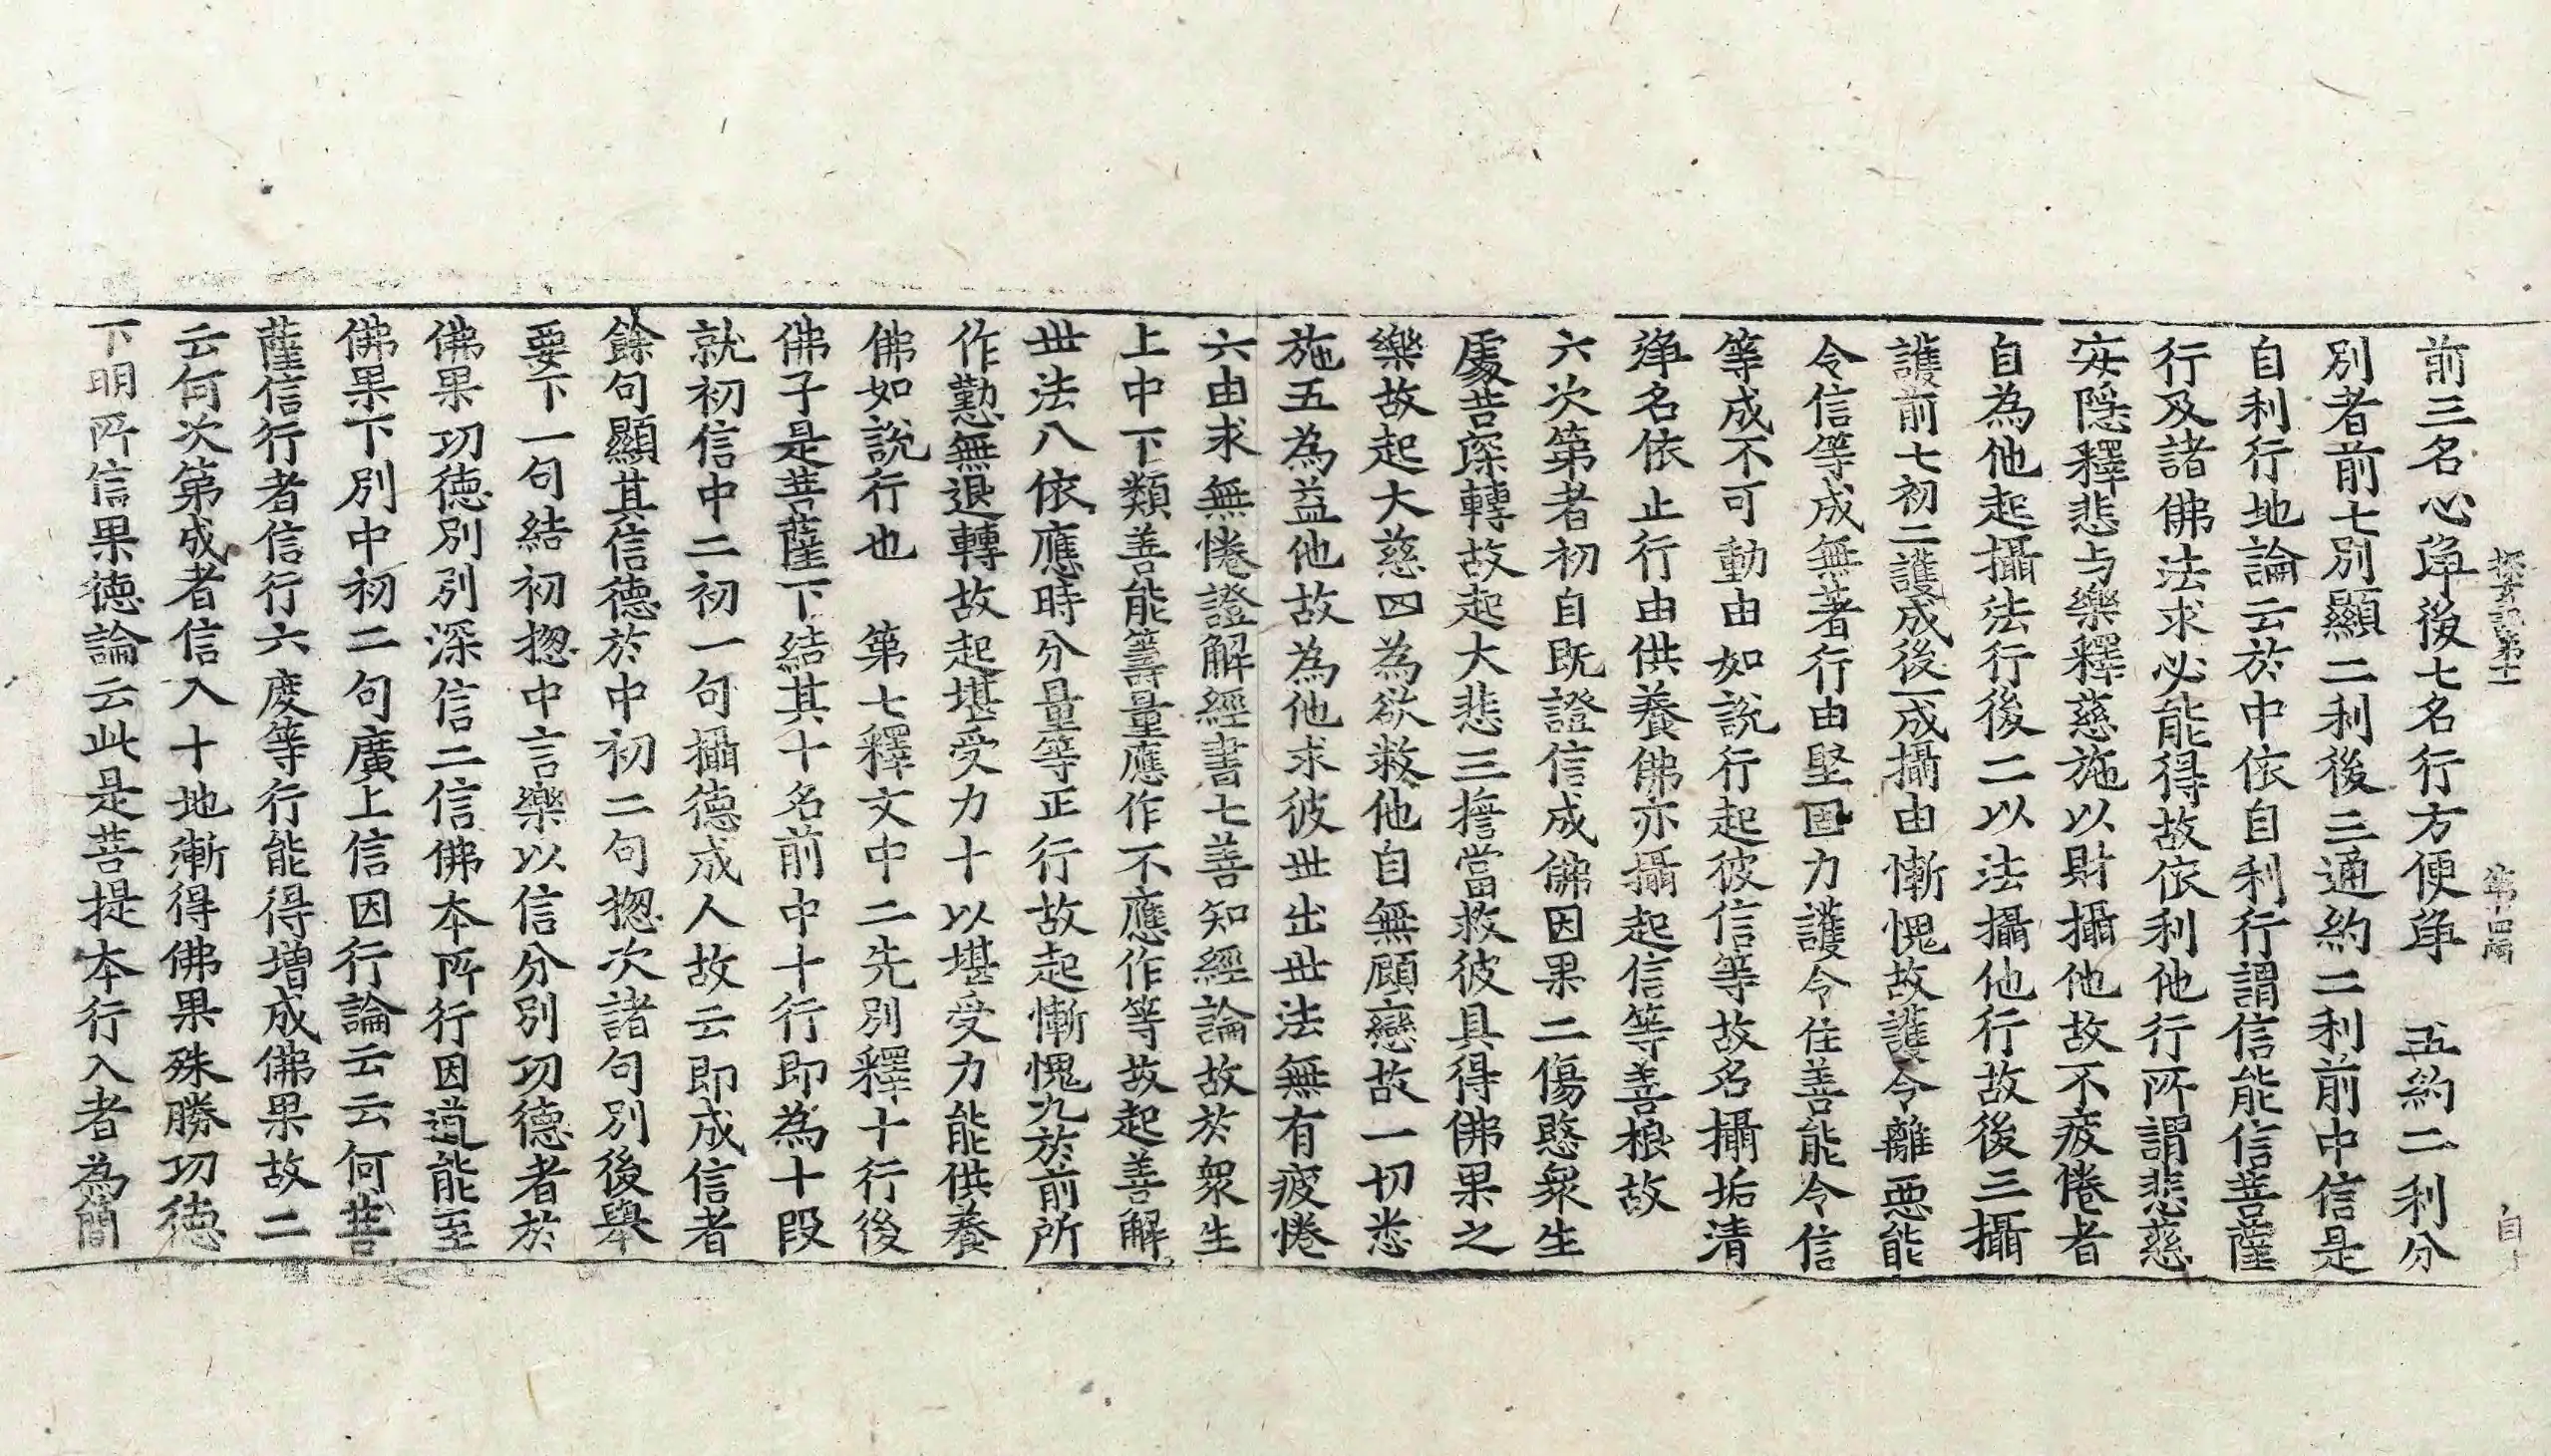 探玄記第十一 第十四張 自
前三名心淨後七名行方便淨 五約二利分
別者前七別顯二利後三通約二利前中信是
自利行地論云於中依自利行謂信能信菩薩
行及諸佛法求必能得故依利他行所謂悲慈
安隱釋悲与樂釋慈施以財攝他故不疲惓者
自為他起攝法行後二以法攝他行故後三攝
護前七初二護成後一成攝由慚愧故護令離惡能
令信等成無著行由堅固力護令住善能令信
等成不可動由如說行起彼信等故名攝垢清
淨名依止行由供養佛亦攝起信等善根故
六次第者初自既證信成佛因果二傷愍衆生
處苦深轉故起大悲三擔當救彼具得佛果之
樂故起大慈四為欲救他自無顧戀故一切悉
施五為益他故為他求彼世出世法無有疲惓
六由求無惓證解經書七善知經論故於衆生
上中下類善能籌量應作不應作等故起善解
世法八依應時分量等正行故起慚愧九於前所
作懃無退轉故起堪受力十以堪受力能供養
佛如說行也 第七釋文中二先別釋十行後
佛子是菩薩下結其十名前中十行即為十段
就初信中二初一句攝德成人故云即成信者
餘句顯其信德於中初二句捴次諸句別後舉
要下一句結初捴中言樂以信分別功德者於
佛果功德別別深信二信佛本所行因道能至
佛果下別中初二句廣上信因行論云云何菩
薩信行者信行六度等行能得増成佛果故二
云何次第成者信入十地漸得佛果殊勝功德
下明所信果德論云此是菩提本行入者為簡